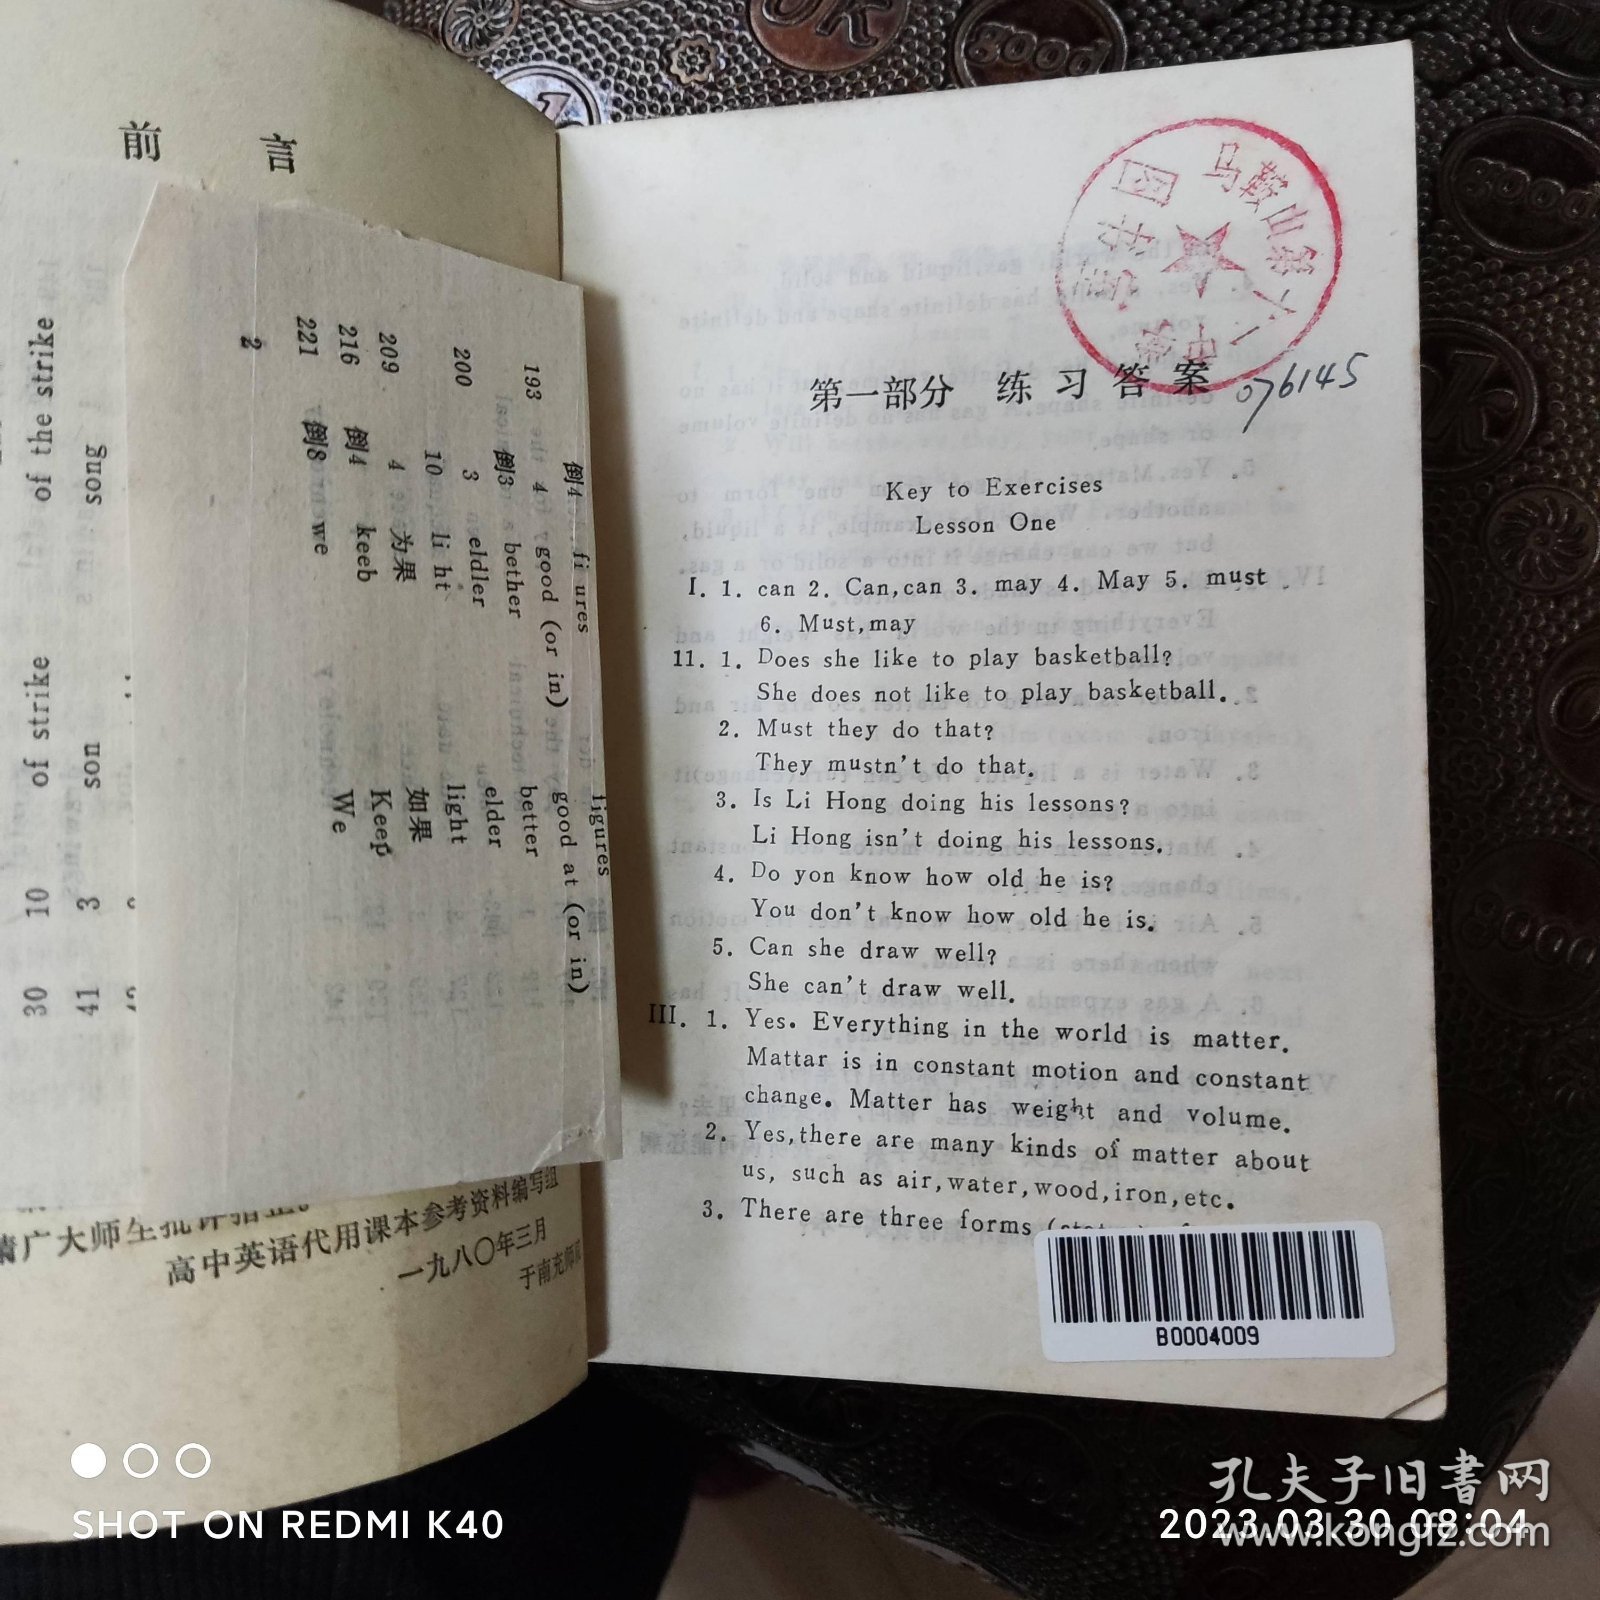 前 言
请广大师生批评指正。
高中英语代用课本参考资料编写组
一九八〇年三月
30 10 of strike of the strike
41 3 son song
倒4 fi ures figures
193 4 good (or in) good at (or in)
倒3 bether better
200 3 eldler elder
10 li ht light
209 4 为果 如果
216 倒4 keeb Keep
221 倒8 we We
2
马鞍山第十一中学图书室
076145
第一部分 练习答案
Key to Exercises
Lesson One
I. 1. can 2. Can,can 3. may 4. May 5. must
6. Must,may
11. 1. Does she like to play basketball?
She does not like to play basketball.
2. Must they do that?
They mustn't do that.
3. Is Li Hong doing his lessons?
Li Hong isn't doing his lessons.
4. Do yon know how old he is?
You don't know how old he is.
5. Can she draw well?
She can't draw well.
III. 1. Yes. Everything in the world is matter.
Mattar is in constant motion and constant
change. Matter has weight and volume.
2. Yes,there are many kinds of matter about
us, such as air,water,wood,iron,etc.
3. There are three forms
B0004009
SHOT ON REDMI K40
孔夫子旧书网
2023.03.30 08:04
www.kongfz.com